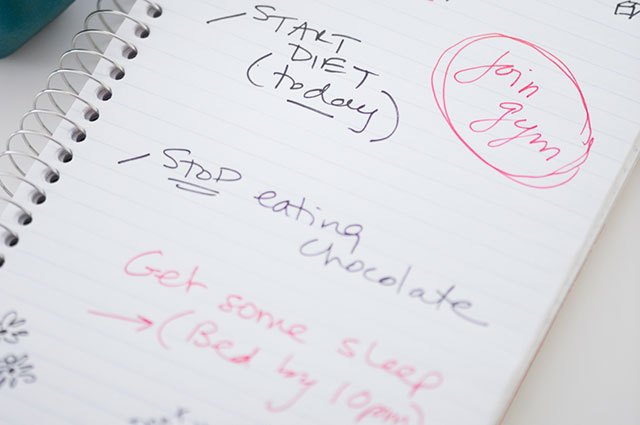 / START
DIET
(today)
Join
gym
/ STOP eating
chocolate
Get some sleep
→ (Bed by 10pm)